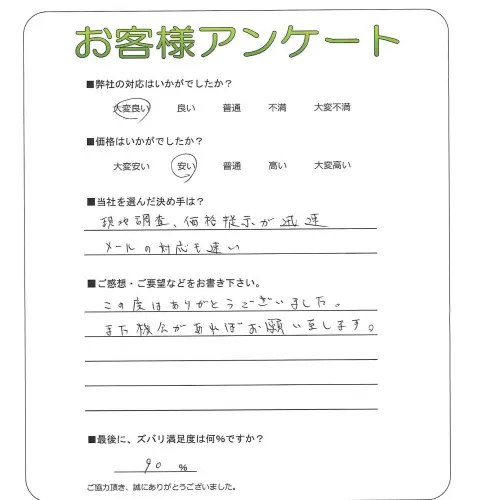 お客様アンケート
■弊社の対応はいかがでしたか？
大変良い 良い 普通 不満 大変不満
■価格はいかがでしたか？
大変安い 安い 普通 高い 大変高い
■当社を選んだ決め手は？
現地調査、価格提示が迅速
メールの対応も速い
■ご感想・ご要望などをお書き下さい。
この度はありがとうございました。
また機会があればお願い致します。
■最後に、ズバリ満足度は何%ですか？
90 %
ご協力頂き、誠にありがとうございました。